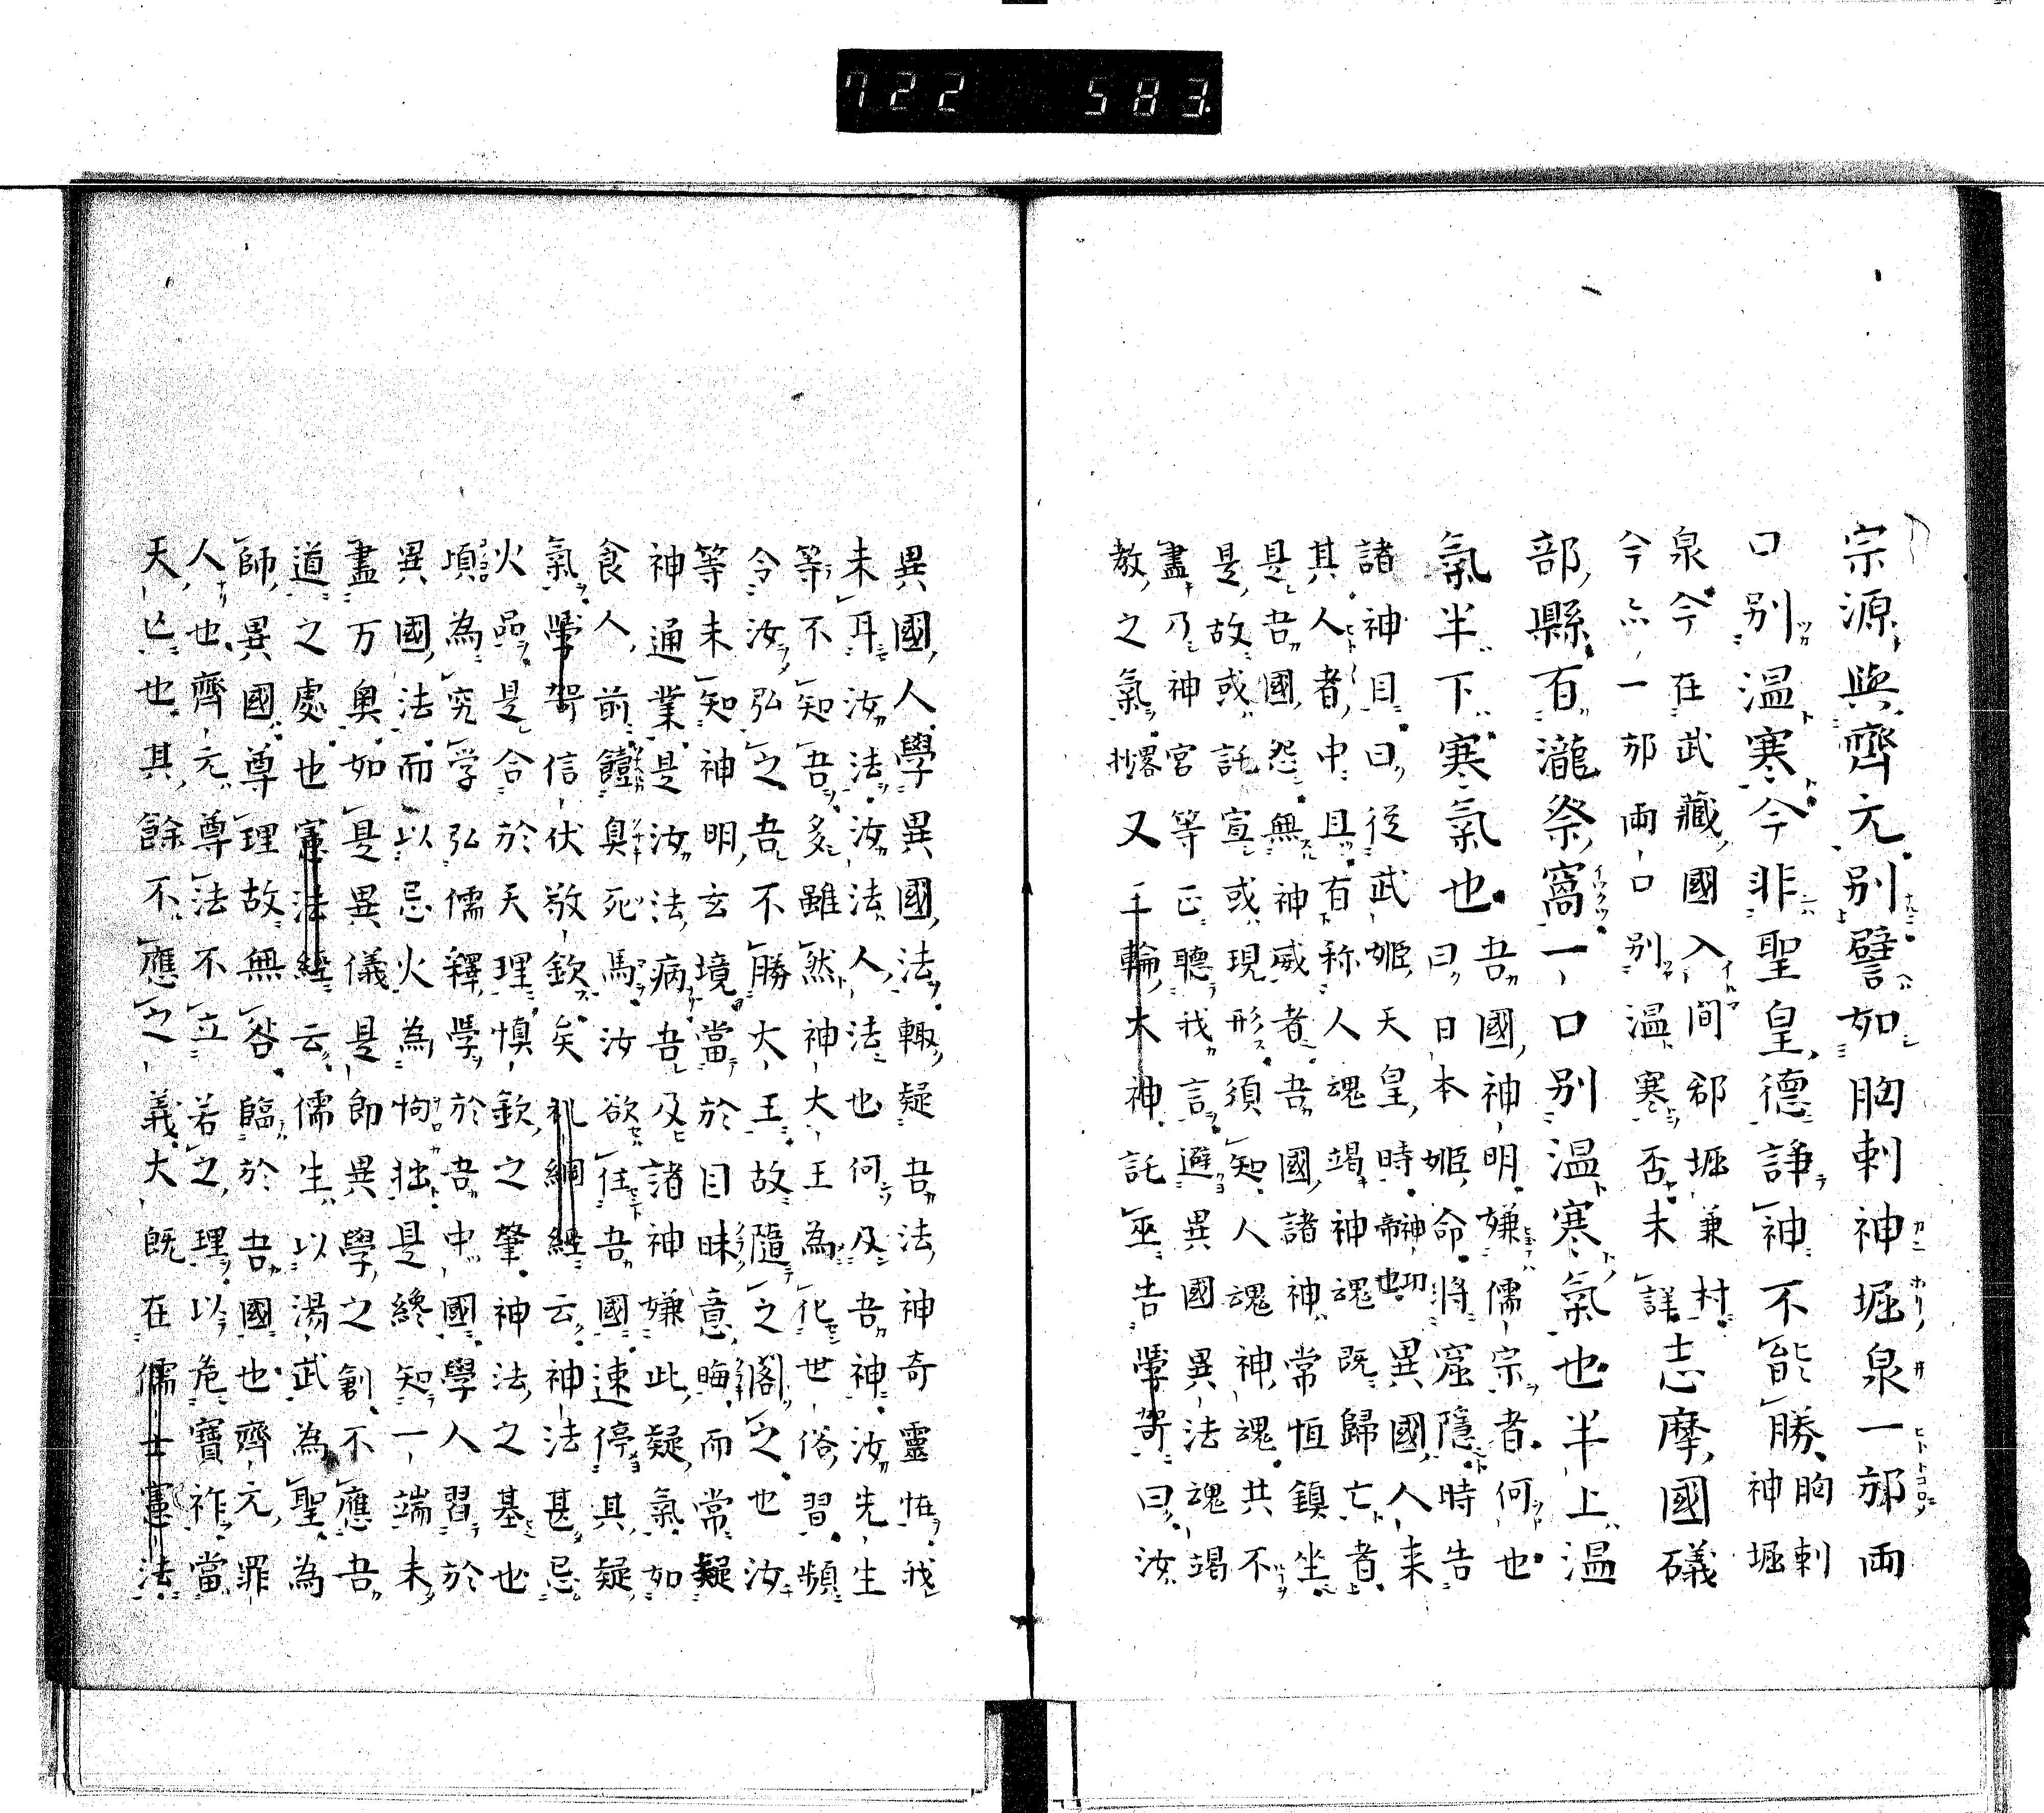 722 583
宗源與齊元別譬如胸刺神堀泉一邨両
口別温寒今非聖皇德諍神不能勝胸刺
神堀
泉今在武藏國入間郡堀兼村
今亦一邨両口別温寒否未詳志摩國礒
部縣有瀧祭窩一口別温寒氣也半上温
氣半下寒氣也吾國神明嫌儒宗者何也
曰日本姫命將窟隱時告
諸神目曰從武姫天皇時神功帝也異國人来
其人者中且有称人魂竭神魂既歸亡者
是吾國怨無神威者吾國諸神常恒鎮坐
是故或託宣或現形須知人魂神魂共不
盡乃神宮等正聽我言避異國異法魂竭
教之氣抄畧又千輪木神託巫告學哿曰汝
異國人學異國法輙疑吾法神奇靈恠我
未耳汝法汝法人法也何及吾神汝先生
等不知吾多雖然神大王為化世俗習頻
令汝弘之吾不勝大王故隨之閣之也汝
等未知神明玄境當於目昧意晦而常疑
神通業是汝法病吾及諸神嫌此疑氣如
食人前饐臭死馬汝欲住吾國速停其疑
氣學哿信伏敬欽矣礼綱經云神法甚忌
火品是合於天理慎欽之肇神法之基也
頃為究学弘儒釋學於吾中國學人習於
異國法而以忌火為拘拙是終知一端未
盡万奥如是異儀是即異學之創不應吾
道之處也憲法經云儒生以湯武為聖為
師異國尊理故無咎臨於吾國也齊元罪
人也齊元尊法不立若之理以危寶祚當
天亡也其餘不應之義大既在儒士憲法